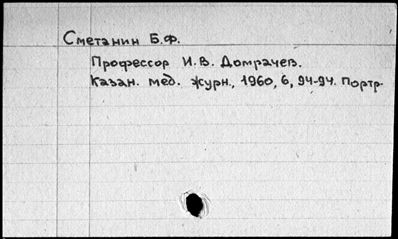 Сметанин Б.Ф.
Профессор И.В. Домрачев.
Казан. мед. журн., 1960, 6, 94-94. Портр.